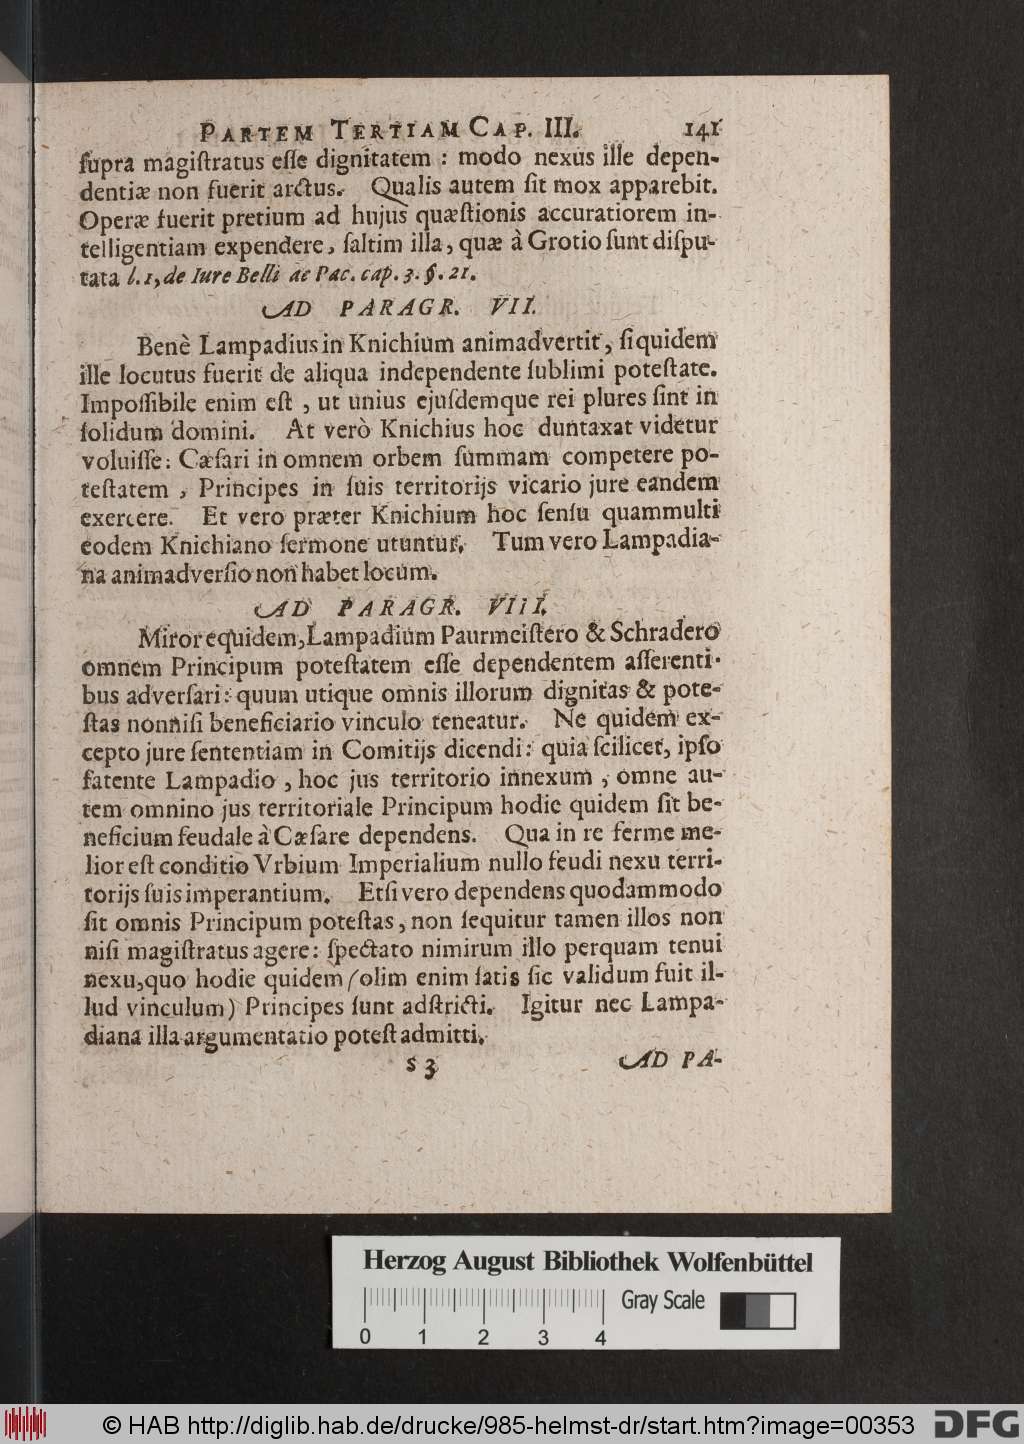 PARTEM TERTIAM CAP. III. 141
ſupra magiſtratus eſſe dignitatem : modo nexus ille depen-
dentiæ non fuerit arctus. Qualis autem ſit mox apparebit.
Operæ fuerit pretium ad hujus quæſtionis accuratiorem in-
telligentiam expendere, ſaltim illa, quæ à Grotio ſunt diſpu-
tata l. 1, de Iure Belli ac Pac. cap. 3. §. 21.
AD PARAGR. VII.
Benè Lampadius in Knichium animadvertit, ſiquidem
ille locutus fuerit de aliqua independente ſublimi poteſtate.
Impoſſibile enim eſt , ut unius ejuſdemque rei plures ſint in
ſolidum domini. At verò Knichius hoc duntaxat videtur
voluiſſe: Cæſari in omnem orbem ſummam competere po-
teſtatem , Principes in ſuis territorijs vicario jure eandem
exercere. Et vero præter Knichium hoc ſenſu quammulti
eodem Knichiano ſermone utuntur. Tum vero Lampadia-
na animadverſio non habet locum.
AD PARAGR. VIII.
Miror equidem, Lampadium Paurmeiſtero & Schradero
omnem Principum poteſtatem eſſe dependentem aſſerenti-
bus adverſari: quum utique omnis illorum dignitas & pote-
ſtas nonniſi beneficiario vinculo teneatur. Ne quidem ex-
cepto jure ſententiam in Comitijs dicendi: quia ſcilicet, ipſo
fatente Lampadio , hoc jus territorio innexum , omne au-
tem omnino jus territoriale Principum hodie quidem ſit be-
neficium feudale à Cæſare dependens. Qua in re ferme me-
lior eſt conditio Vrbium Imperialium nullo feudi nexu terri-
torijs ſuis imperantium. Etſi vero dependens quodammodo
ſit omnis Principum poteſtas, non ſequitur tamen illos non
niſi magiſtratus agere: ſpectato nimirum illo perquam tenui
nexu, quo hodie quidem (olim enim ſatis ſic validum fuit il-
lud vinculum) Principes ſunt adſtricti. Igitur nec Lampa-
diana illa argumentatio poteſt admitti.
S 3 AD PA-
Herzog August Bibliothek Wolfenbüttel
Gray Scale
0 1 2 3 4
© HAB http://diglib.hab.de/drucke/985-helmst-dr/start.htm?image=00353 DFG